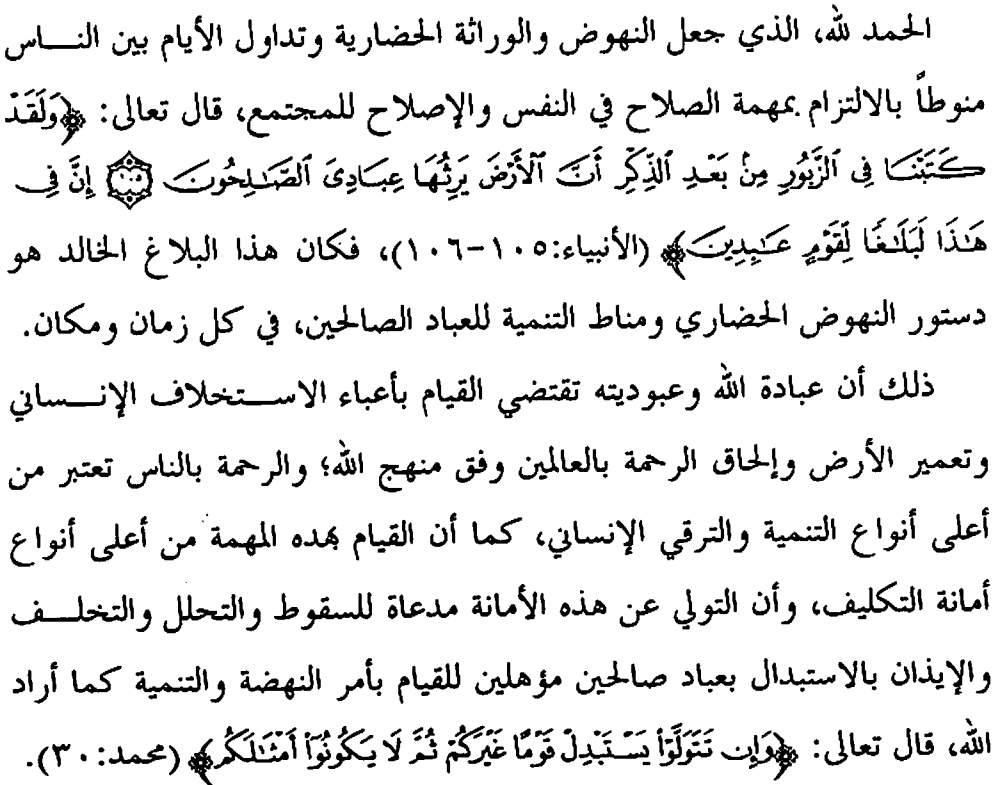 الحمد لله، الذي جعل النهوض والوراثة الحضارية وتداول الأيام بين النـــاس
منوطاً بالالتزام بمهمة الصلاح في النفس والإصلاح للمجتمع، قال تعالى: ﴿وَلَقَدْ
كَتَبْنَا فِي ٱلزَّبُورِ مِنۢ بَعْدِ ٱلذِّكْرِ أَنَّ ٱلْأَرْضَ يَرِثُهَا عِبَادِىَ ٱلصَّـٰلِحُونَ ۝١٠٥ إِنَّ فِي
هَـٰذَا لَبَلَـٰغًا لِّقَوْمٍ عَـٰبِدِينَ﴾ (الأنبياء:١٠٥-١٠٦)، فكان هذا البلاغ الخالد هو
دستور النهوض الحضاري ومناط التنمية للعباد الصالحين، في كل زمان ومكان.
ذلك أن عبادة الله وعبوديته تقتضي القيام بأعباء الاســـتخلاف الإنـــساني
وتعمير الأرض وإلحاق الرحمة بالعالمين وفق منهج الله؛ والرحمة بالناس تعتبر من
أعلى أنواع التنمية والترقي الإنساني، كما أن القيام بهذه المهمة من أعلى أنواع
أمانة التكليف، وأن التولي عن هذه الأمانة مدعاة للسقوط والتحلل والتخلـــف
والإيذان بالاستبدال بعباد صالحين مؤهلين للقيام بأمر النهضة والتنمية كما أراد
الله، قال تعالى: ﴿وَإِن تَتَوَلَّوْا۟ يَسْتَبْدِلْ قَوْمًا غَيْرَكُمْ ثُمَّ لَا يَكُونُوٓا۟ أَمْثَـٰلَكُم﴾ (محمد:٣٠).